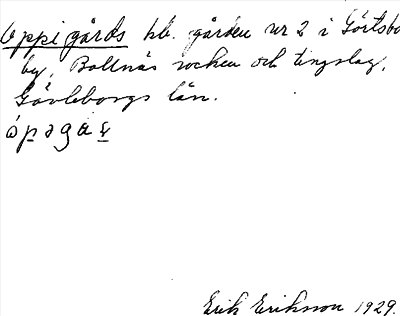 Oppigårds hb. gården nr 2 i Görtsbo
by, Bollnäs socken och tingslag,
Gävleborgs län.
Erik Eriksson 1929.